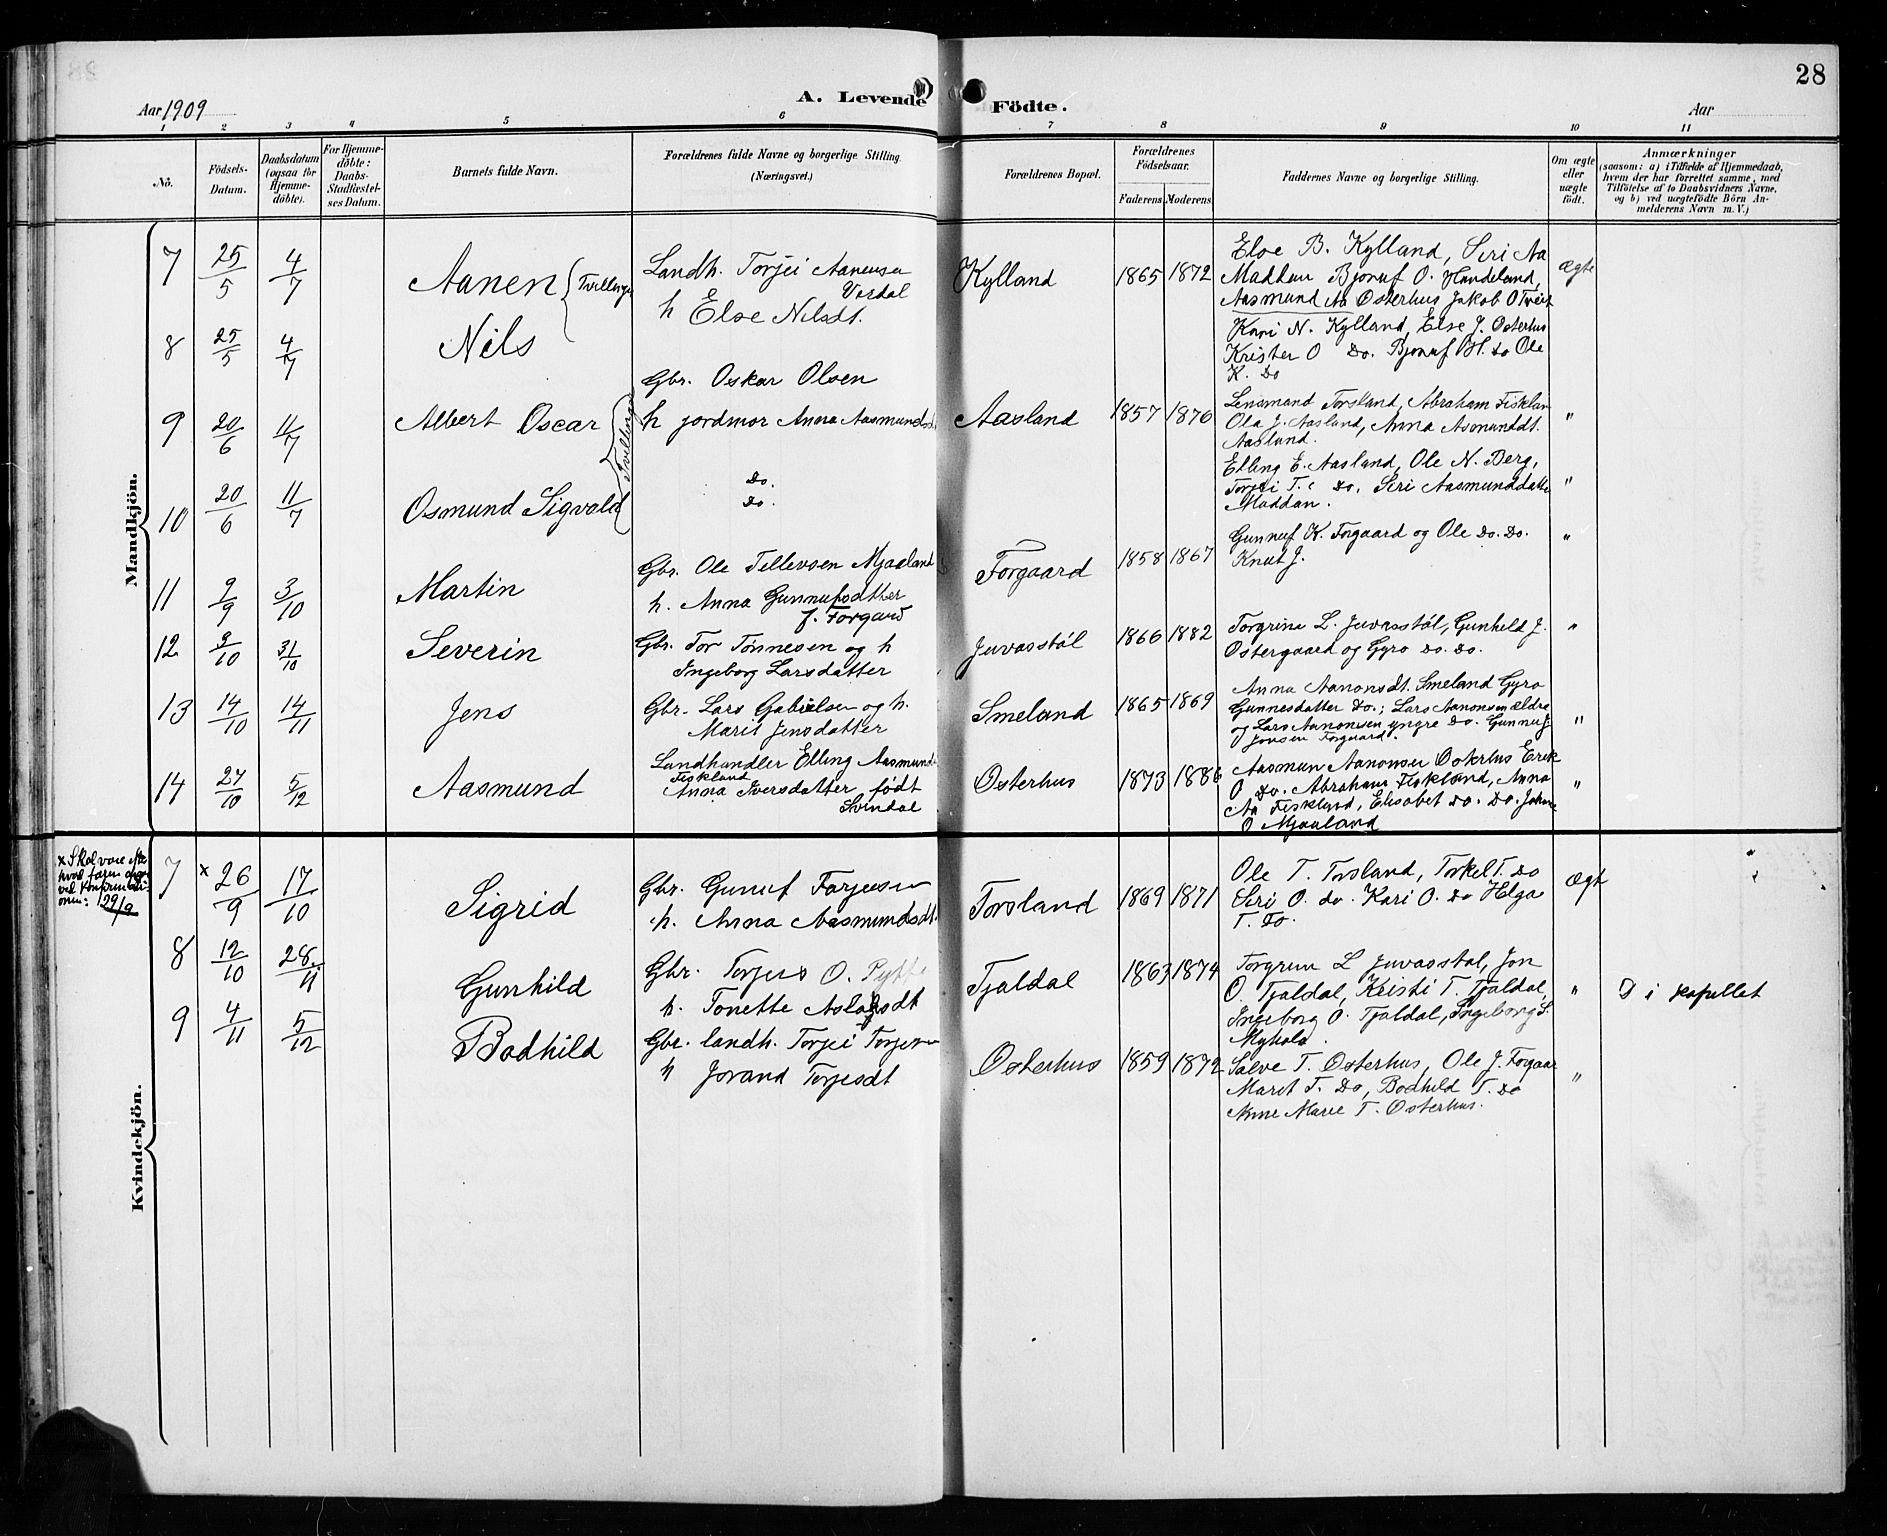 Aar 1909
A. Levende Födte.
Aar
28
1 2 3 4 5 6 7 8 9 10 11
No.
Födsels-Datum.
Daabsdatum (ogsaa for Hjemme-döbte).
For Hjemme-döbte: Daabs-Stadfæstel-ses Datum.
Barnets fulde Navn.
Forældrenes fulde Navne og borgerlige Stilling (Næringsvei.)
Forældrenes Bopæl.
Forældrenes Födselsaar.
Faderens Moderens
Faddernes Navne og borgerlige Stilling.
Om ægte eller uægte födt.
Anmærkninger
(saasom: a) i Tilfælde af Hjemmedaab, hvem der har forrettet samme, med Tilföielse af to Daabsvidners Navne, og b) ved uægtefödte Börn An-melderens Navn m. V.)
Mandkjön.
7 25/5 4/7 Aanen Tvillinger
Landh. Torjei Aanensen
h Else Nilsdt.
Kylland 1865 1872
Else B. Kylland, Siri Aa
Maddan Bjonuf O. Handeland,
Aasmund Aa Osterhus Jakob O Tveit
Ægte
8 25/5 4/7 Nils
Kari N. Kylland, Else J. Osterhus
Krister O Do. Bjonuf H. Do Ole
K. Do
9 20/6 11/7 Albert Oscar Tvillinger
Gbr. Oskar Olsen
h jordmor Anna Aasmundsdt.
Aasland 1857 1870
Lensmand Torsland, Abraham Fiskland
Ola J. Aasland, Anna Asmunddt.
Aasland.
"
10 20/6 11/7 Osmund Sigvald
Do.
Do.
Elling E. Aasland, Ole N. Berg,
Torjei T. Do. Siri Aasmunddatter
Maddan.
"
11 9/9 3/10 Martin
Gbr. Ole Tellevsen Mjaaland
h. Anna Gunnufsdatter
f. Forgard
Forgaard 1858 1867
Gunnuf K. Forgaard og Ole Do. Do.
Knut J.
"
12 9/10 31/10 Severin
Gbr. Tor Tønnesen og h
Ingeborg Larsdatter
Juvasstøl 1866 1882
Torgrine L. Juvasstøl, Gunhild J.
Ostergaard og Gyro Do. Do.
"
13 14/10 14/11 Jens
Gbr. Lars Gabrielsen og h.
Marit Jensdatter
Smeland 1865 1869
Anna Aanonsdt. Smeland Gyro
Gunnesdatter Do.; Lars Aanonsen ældre
og Lars Aanonsen yngre Do. Gunnuf
Jonsen Forgaard.
"
14 27/10 5/12 Aasmund
Landhandler Elling Aasmunds
Fiskland
Anna Iversdatter født
Svindal
Osterhus 1873 1886
Aasmun Aanonsen Osterhus Erik
O Do. Abraham Fiskland, Anna
Aa Fiskland, Elisabet Do. Do.
O Mjaaland
"
Kvindekjön.
x Skal være efter
hvad faren opgav
ved Konfirmati-
onen: 29/9
7 x 26/9 17/10 Sigrid
Gbr. Gunuf Torjesen
h. Anna Aasmundsdt.
Torsland 1869 1871
Ole T. Torsland, Torkel T. Do
Siri O. do. Kari O. Do Helga
T. Do.
Ægt
8 12/10 28/11 Gunhild
Gbr. Torjus O.
h. Tonette Aslagsdt
Tjaldal 1863 1874
Torgrim L Juvasstøl, Jon
O. Tjaldal, Kristi T. Tjaldal,
Ingeborg O. Tjaldal, Ingeborg S.
"
D i kapellet
9 4/11 5/12 Bodhild
Gbr. landh. Torjei Torjesen
h Jorand Torjesdt
Osterhus 1859 1872
Salve T. Osterhus, Ole J. Forgaar
Marit T. Do, Bodhild T. Do
Anne Marie T. Osterhus.
"